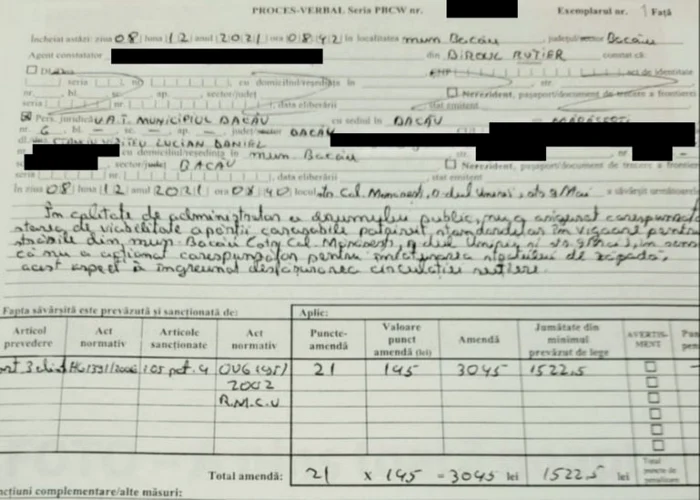 PROCES-VERBAL Seria PBCW nr. Exemplarul nr. 1 Față
Încheiat astăzi: ziua 08 luna 12 anul 2021 ora 08:42 în localitatea mun. Bacău județul/sector Bacău
Agent constatator din BIROUL RUTIER constată că:
CNP act de identitate
seria nr. cu domiciliul/reședința în str.
nr. bl. sc. ap. sector/județ Nerezident, pașaport/document de trecere a frontierei
seria data eliberării stat emitent
Pers. juridică U.A.T. MUNICIPIUL BACĂU cu sediul în BACĂU MĂRĂȘEȘTI
nr. 6 bl. — sc. — ap. — județ/sector BACĂU
LUCIAN DANIEL
cu domiciliul/reședința în mun. Bacău str.
sector/județ BACĂU Nerezident, pașaport/document de trecere a frontierei
seria data eliberării stat emitent
În ziua 08 luna 12 anul 2021 ora 08:40 locul str. Cal. Mărășești, B-dul Unirii, str. 9 Mai a săvârșit următoarele
În calitate de administrator a drumului public, nu a asigurat corespunză
starea de viabilitate a părții carosabile potrivit standardelor în vigoare pentru
străzile din mun. Bacău Cal. Mărășești, B-dul Unirii și str. 9 Mai), în sensul
că nu a acționat corespunzător pentru înlăturarea stratului de zăpadă,
acest aspect a îngreunat desfășurarea circulației rutiere.
Fapta săvârșită este prevăzută și sancționată de: Aplic:
Articol prevedere Act normativ Articole sancționate Act normativ Puncte-amendă Valoare punct amendă (lei) Amendă Jumătate din minimul prevăzut de lege AVERTIS-MENT
HG 1391/2006 105 pct. 4 OUG 195/ 21 145 3045 1522,5
2002
R.M.C.U
Total amendă: 21 x 145 = 3045 lei 1522,5 lei Total puncte de penalizare
complementare/alte măsuri: